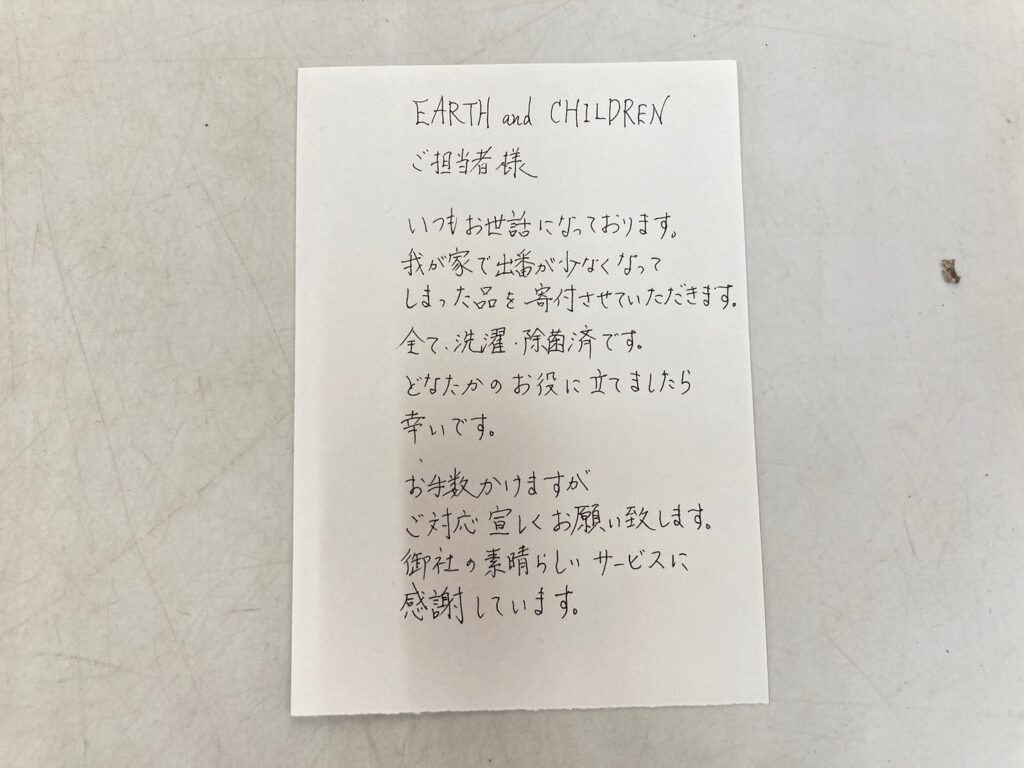 EARTH and CHILDREN
ご担当者様
いつもお世話になっております。
我が家で出番が少なくなって
しまった品を寄付させていただきます。
全て、洗濯・除菌済です。
どなたかのお役に立てましたら
幸いです。
お手数かけますが
ご対応宜しくお願い致します。
御社の素晴らしいサービスに
感謝しています。